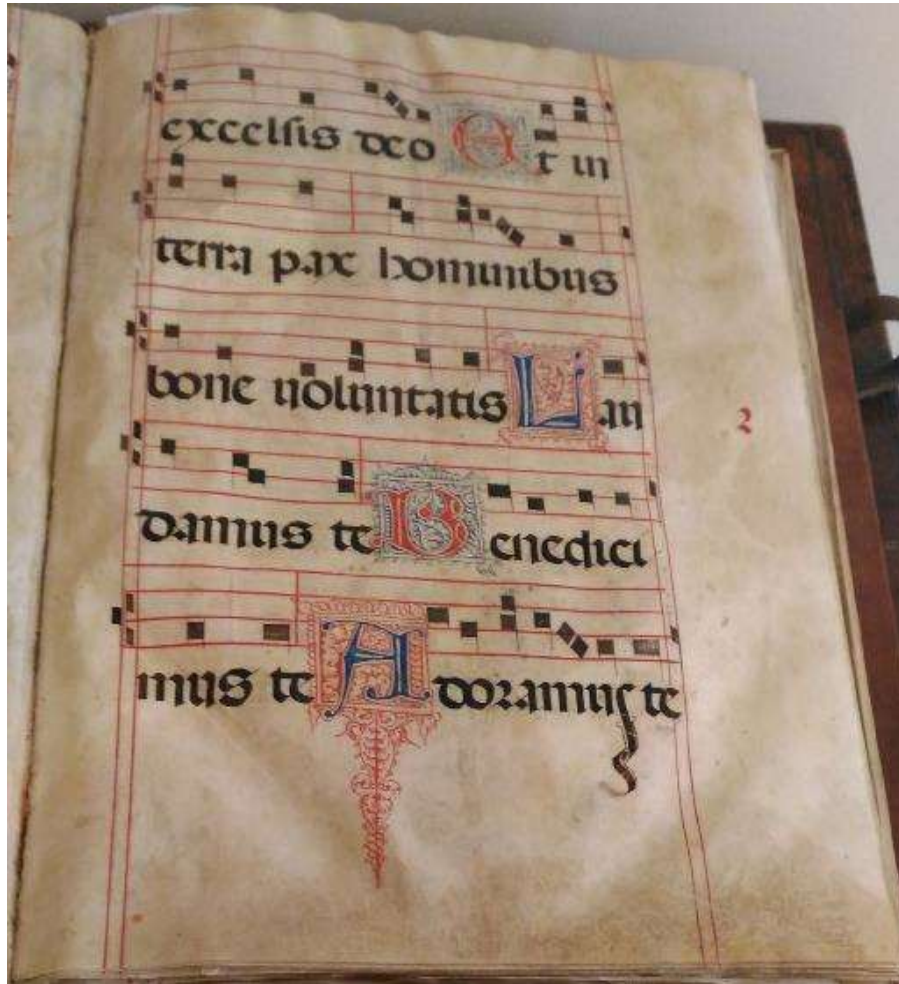 excelsis deo Et in
terra pax hominibus
bone uoluntatis Lau
damus te Benedici
mus te Adoramus te
2